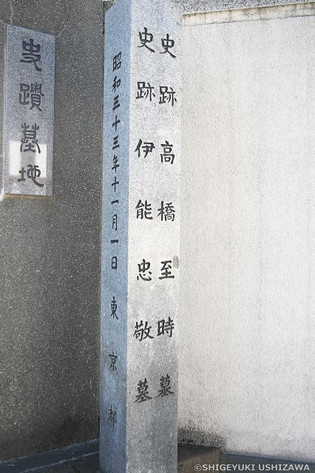 史跡高橋至時墓
史跡伊能忠敬墓
昭和三十三年十一月一日 東京都
史蹟墓地
©SHIGEYUKI USHIZAWA